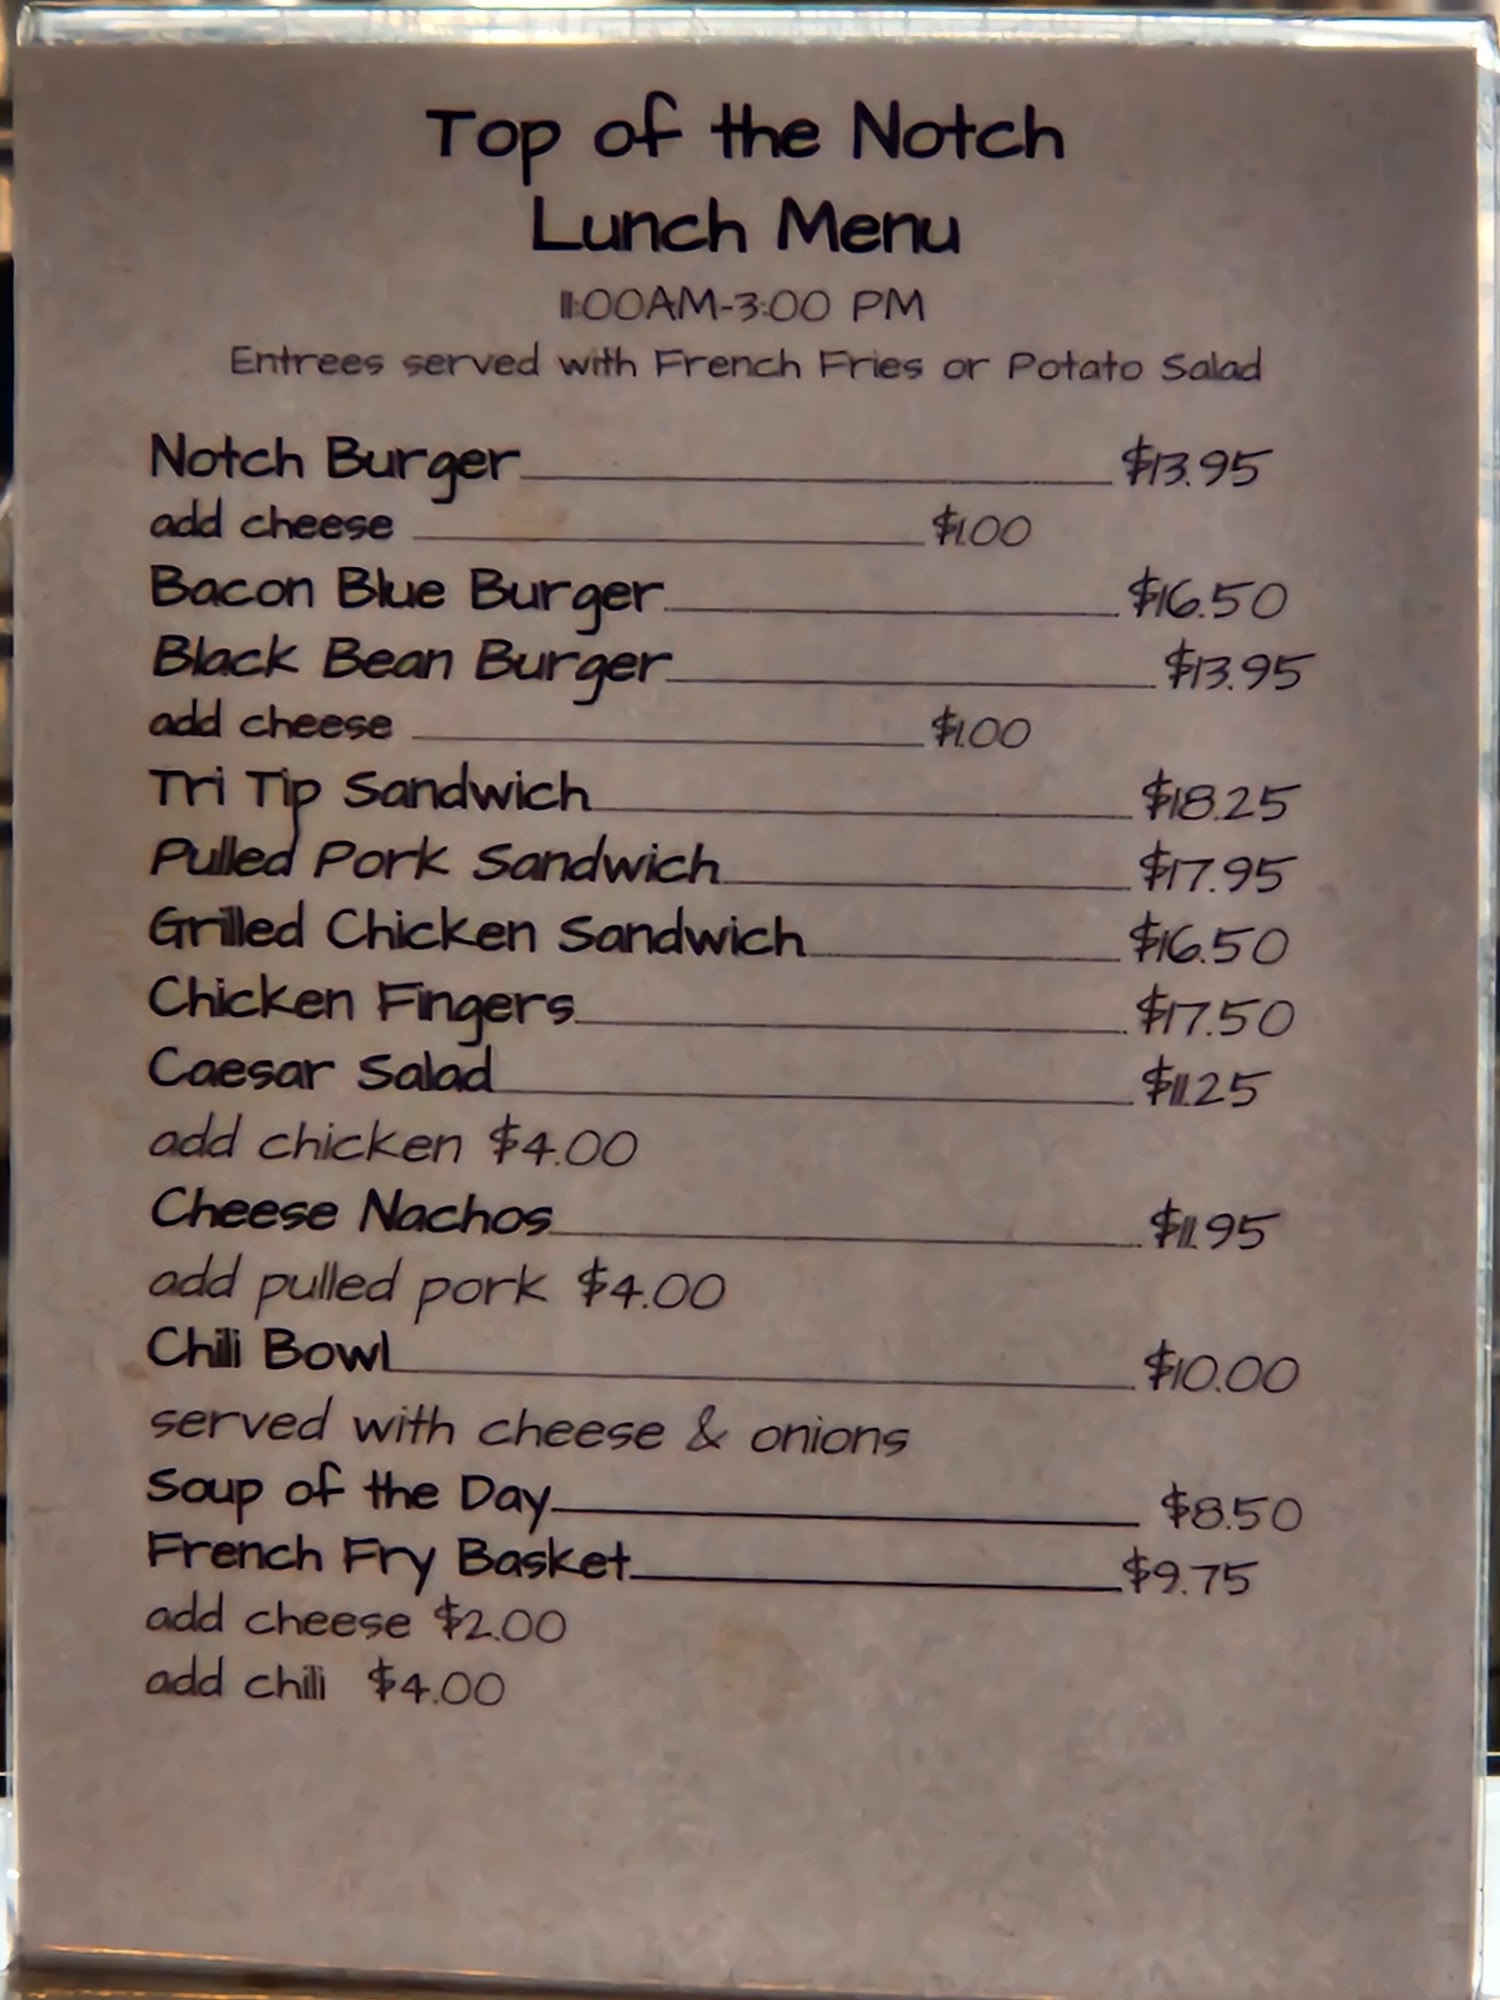 Top of the Notch
Lunch Menu
11:00AM-3:00 PM
Entrees served with French Fries or Potato Salad
Notch Burger $13.95
add cheese $1.00
Bacon Blue Burger $16.50
Black Bean Burger $13.95
add cheese $1.00
Tri Tip Sandwich $18.25
Pulled Pork Sandwich $17.95
Grilled Chicken Sandwich $16.50
Chicken Fingers $17.50
Caesar Salad $11.25
add chicken $4.00
Cheese Nachos $11.95
add pulled pork $4.00
Chili Bowl $10.00
served with cheese & onions
Soup of the Day $8.50
French Fry Basket $9.75
add cheese $2.00
add chili $4.00